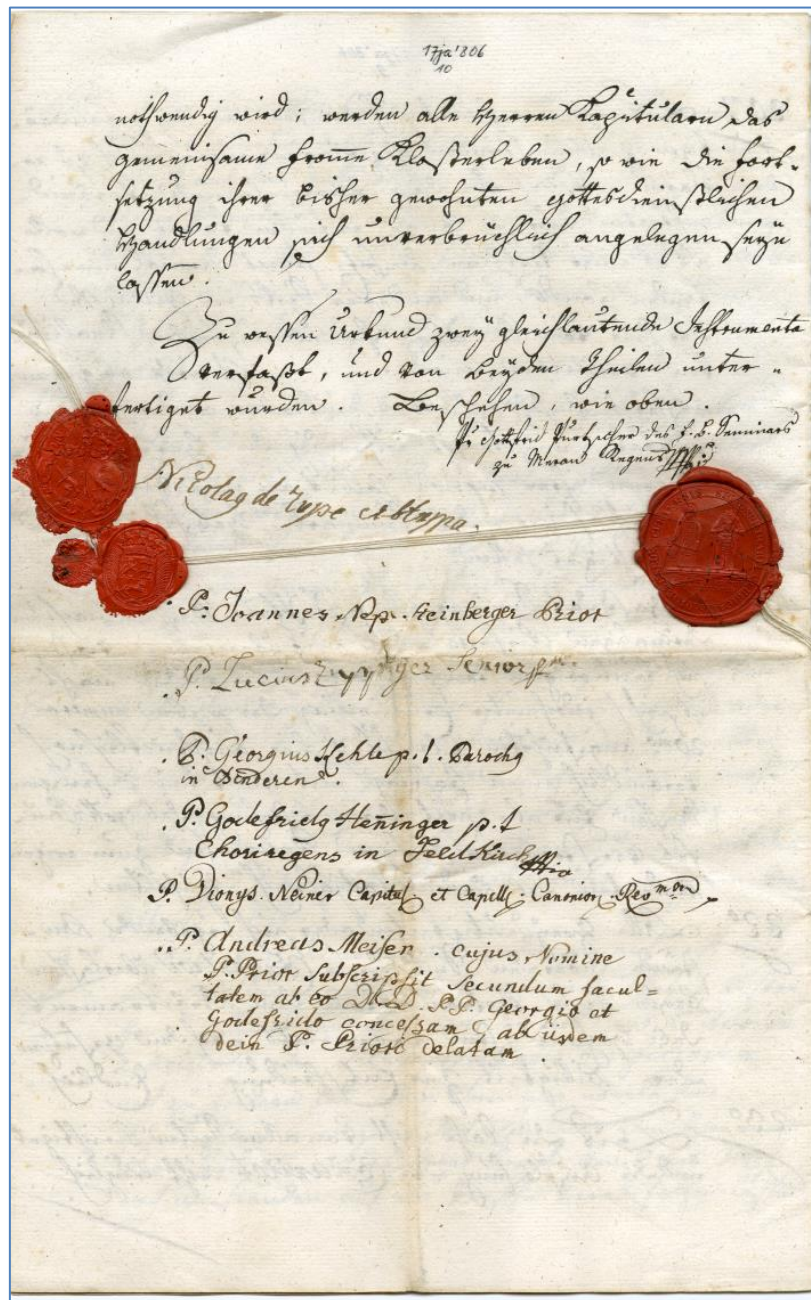 17ja'806
10
nothwendig wird; werden alle Herren Kapitularn das
gemeinsame fromme Klosterleben, so wie die Fort-
setzung ihrer bisher gewohnten gottesdienstlichen
Handlungen sich unverbrüchlich angelegen seyn
lassen.
Zu wessen Urkund zwey gleichlautende Instrumenta
verfaßt, und von beyden Theilen unter-
fertiget wurden. Beschehen, wie oben.
Gottfrid Purtscher des f. b. Seminars
zu Meran Regens
Nicolag de
P. Joannes Nep. Heinberger Prior
P. Lucius Senior
P. Georgius Kehle p. t. Parochg
in Benderen.
P. Godefridg Heninger p. t
Choriregens in FeldKirch
P. Dionys. Neiner Capitul et Capell. Canonior. Rev
P. Andreas Meiser. cujus Nomine
P. Prior subscripsit secundum facul=
tatem ab eo DD. PP. Georgio et
Godefrido concessam ab iisdem
dein P. Priori delatam